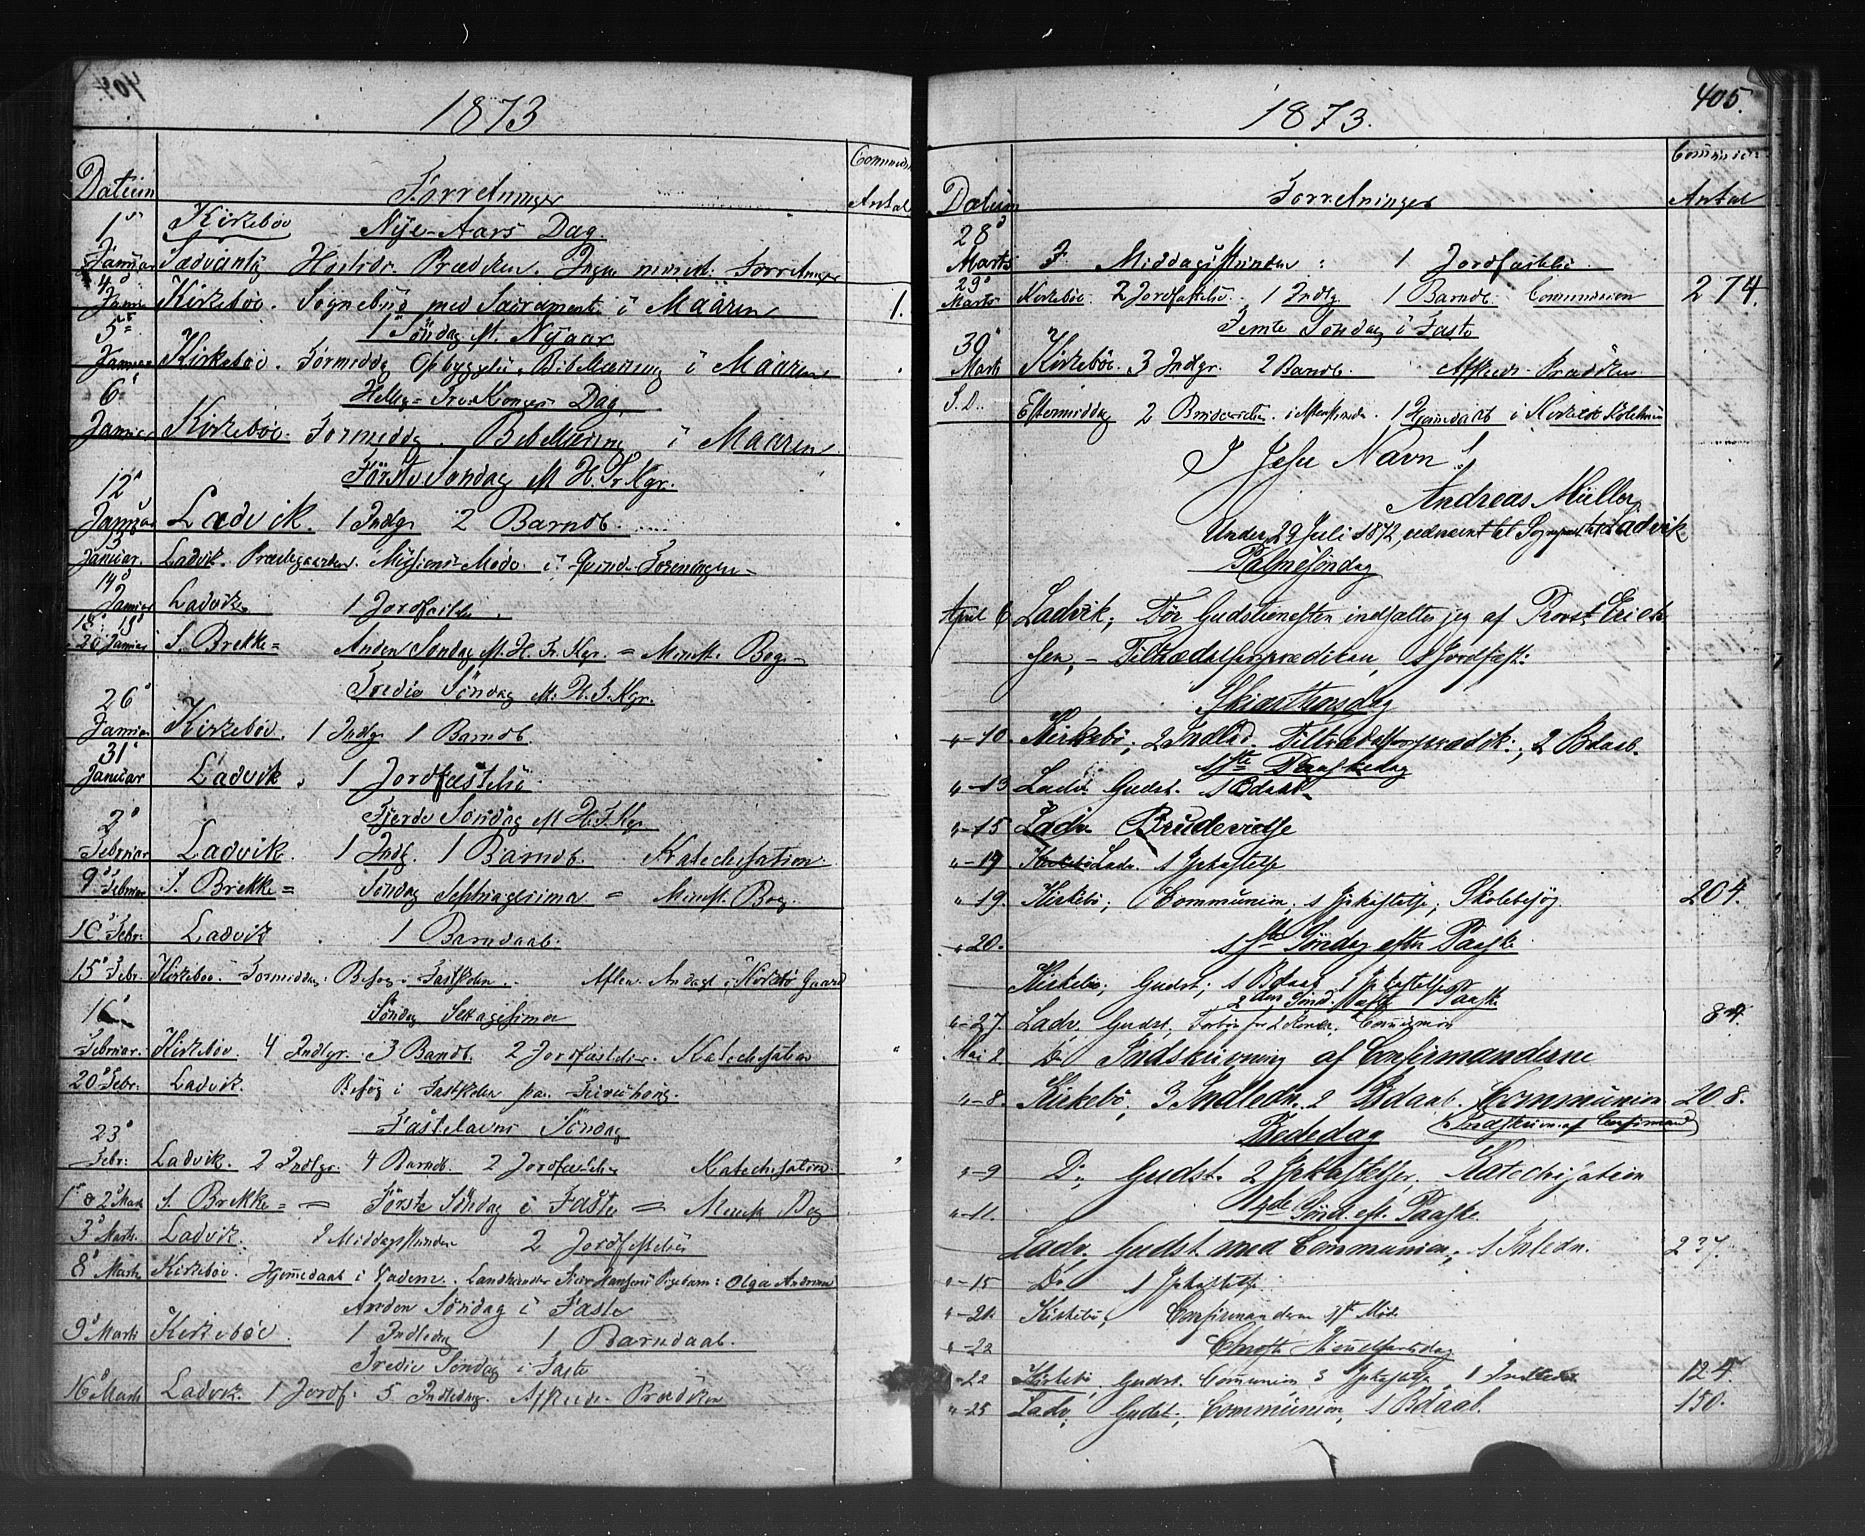 404
1873
Datum Forretninger Communic Antal
1ste Kirkebøe Nye-Aars Dag
Januar Sædvanlig Prædiken. Ingen minist. Forretninger
4de
Januar Kirkebøe. Sognebud med Sacrament i Maaren 1.
5te 1 Søndag M. Nyaar
Januar Kirkebøe. Formiddag Opbyggelse, Bibellæsning i Maaren
6 Hellig-Tre Konger Dag
Januar Kirkebøe. Formiddag. Bibellæsning i Maaren
Første Søndag M H. Tr. Kgr.
12
Januar Ladvik. 1 Indlgr 2 Barndb.
13
Januar. Ladvik. Præstegaarden. Missions Møde i Qvinde-Foreningen
14
Januar Ladvik 1 Jordfæstelse.
18 19
20 Januar S. Brekke = Anden Søndag M. H. Tr. Kgr. = Minist. Bog
Tredie Søndag M. H. T. Kgr.
26
Januar Kirkebøe. 1 Indlgr 1 Barndb.
31
Januar Ladvik. 1 Jordfæstelse
Fjerde Søndag M H. T. Kgr
2
Februar Ladvik. 1 Indl. 1 Barndb. Katechisation
9 Februar S. Brekke = Søndag Septuagesima = Minist. Bog.
10 Febr: Ladvik. 1 Barndaab.
15 Febr. Kirkebøe. Formiddag: Besøg i Fastskolen. Aften Andagt i Kirkebø Gaard
16 Søndag Sexagesima
Februar. Kirkebøe. 4 Indlgr. 3 Barndb. 2 Jordfæstelser. Katechisation
20 Febr: Ladvik. Besøg i Fastskolen paa
23 Fastelavns Søndag
Febr: Ladvik. 2 Indlgr. 4 Barndb. 2 Jordfæstelser Katechisation
1 & 2 Marts S. Brekke = = Første Søndag i Faste = Minist. Bog
3 Marts Ladvik. I Middagsstunden 2 Jordfæstelser
8 Marts Kirkebøe. Hjemedaab i Vadem. Landhandler Hansens Pigebarn: Olga Andrine
Anden Søndag i Faste
9 Marts Kirkebøe. 1 Indledng 1 Barndaab.
Tredie Søndag i Faste
16 Marts Ladvik. 1 Jordf: 5 Indledng. Afskeds-Prædiken
405.
1873.
Datum Forretninger Communic Antal
28
Marts I Middagsstunden: 1 Jordfæstelse
29
Marts Kirkebøe. 2 Jordfæstelse. 1 Indlg 1 Barndb. Communion 274.
Femte Søndag i Faste
30
Marts Kirkebøe. 3 Indlgr. 2 Barndb. Afskeds-Prædiken
S. D. Eftermiddag 2 Brudevielser 1 Hjemedaab i Kirkebø
I Jesu Navn!
Andreas Müller
Under 29 Juli 1872, udnævnt til Sognepræst til Ladvik
Palmesøndag
April 6 Ladvik, Før Gudstjenesten indsattes jeg af Provst Erich-
sen, - Tiltrædelsesprædiken, 1 Jordfæst:
Skjærthorsdag
" - 10. Kirkebø; 2 Indled. Tiltrædelsesprædik:; 2 Bdaab.
1ste Paaskedag
" - 13 Ladv. Gudst. 1 Bdaab.
" - 15 Ladv. Brudevielse
" - 19 Ladv. 1 Jpkastelse
" 19. Kirkebø; Communion. 1 Jpkastelse; Skolebesøg. 204.
" 20. 1ste Søndag efter Paaske
Kirkebø; Gudst; 1 Bdaab 1 Jpkastelse
2den Sønd. efter Paaske
" - 27. Ladv. Gudst. Communion 84.
Mai 2. Do Indskrivning af Confirmanderne
" - 8. Kirkebø; 3 Indledn. 2 Bdaab. Communion 208.
Bededag (Indskrivn. af Confirmand)
" - 9 Do, Gudst. 2 Jpkastelser. Katechisation
" - 11. 4de Sønd. eft. Paaske
Ladv. Gudst med Communion, 1 Inledn. 237.
" - 15 Do 1 Jpkastelse
" - 21. Kirkebø, Confirmandern 1ste Møde
" - 22 Christi Himmelfartsdag
- 22 Kirkebø. Gudst. Communion 3 Jpkastelse 1 Indledn 124.
" - 25 Ladv; Gudst; Communion, 1 Bdaab. 150.